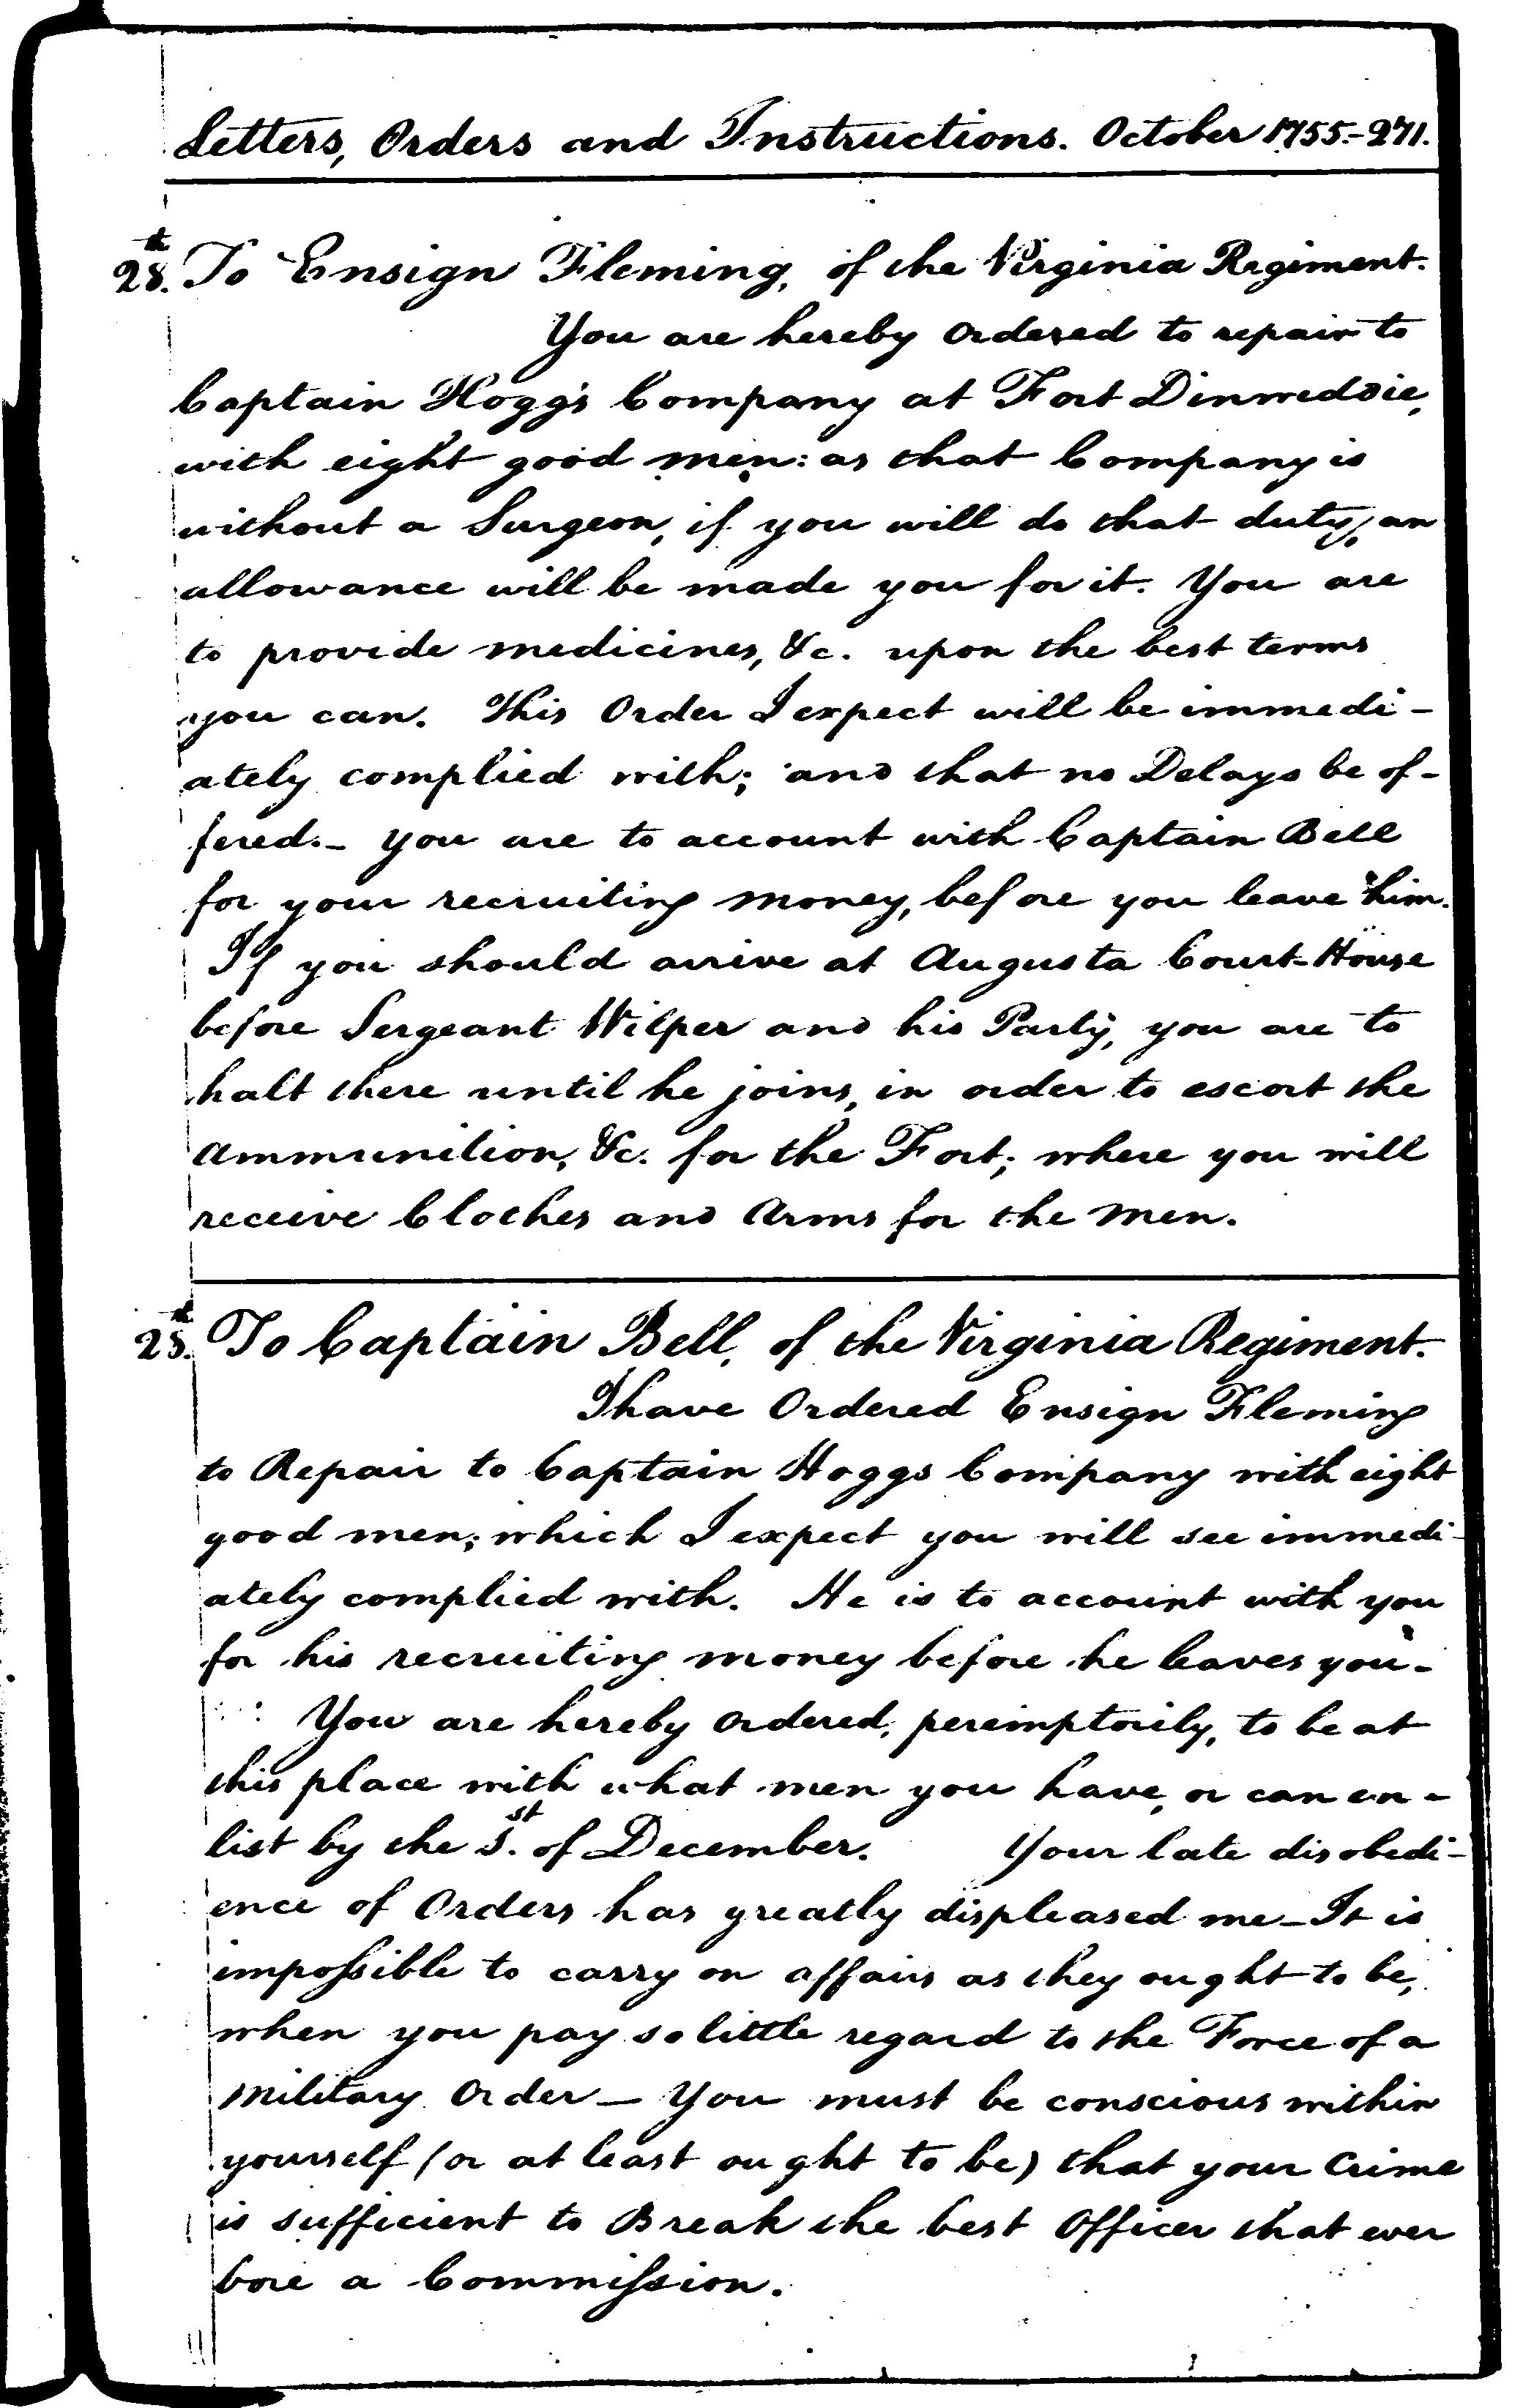 Letters, Orders and Instructions. October 1755.-271.
28.th To Ensign Fleming, of the Virginia Regiment.
You are hereby Ordered to repair to
Captain Hogg's Company at Fort Dinwiddie,
with eight good men: as that Company is
without a Surgeon, if you will do that duty, an
allowance will be made you for it. You are
to provide medicines, &c. upon the best terms
you can. This Order I expect will be immedi-
ately complied with; and that no Delays be of-
fered.- You are to account with Captain Bell
for your recruiting money, before you leave him.
If you should arrive at Augusta Court-House
before Sergeant Wilper and his Party, you are to
halt there until he joins, in order to escort the
Ammunition, &c. for the Fort; where you will
receive Clothes and Arms for the men.
28.th To Captain Bell, of the Virginia Regiment.
I have Ordered Ensign Fleming
to Repair to Captain Hoggs Company with eight
good men; which I expect you will see immedi-
ately complied with. He is to account with you
for his recruiting money before he leaves you-
You are hereby Ordered, peremptorily, to be at
this place with what men you have, or can en-
list by the 1.st of December. Your late disobedi-
ence of Orders has greatly displeased me-It is
impossible to carry on affairs as they ought to be,
when you pay so little regard to the Force of a
military Order- You must be conscious within
yourself (or at least ought to be) that your Crime
is sufficient to Break the best Officer that ever
bore a Commission.